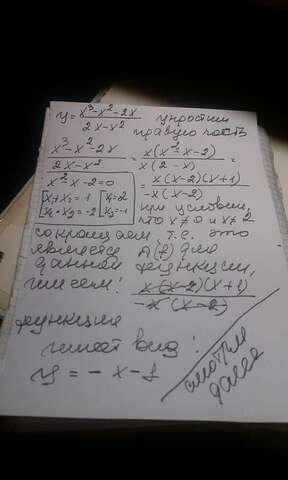 y = x³-x²-2x / 2x-x² упростим
правую часть
x³-x²-2x / 2x-x² = x(x²-x-2) / x(2-x) =
x²-x-2=0
x₁+x₂=1 x₁=2
x₁·x₂=-2 x₂=-1
= x(x-2)(x+1) / -x(x-2)
при условии,
что x≠0 и x≠2
сокращаем, т.с. это
является для
данной функции,
имеем: x(x-2)(x+1) / -x(x-2)
функция
имеет вид:
y = -x-1
смотри
далее